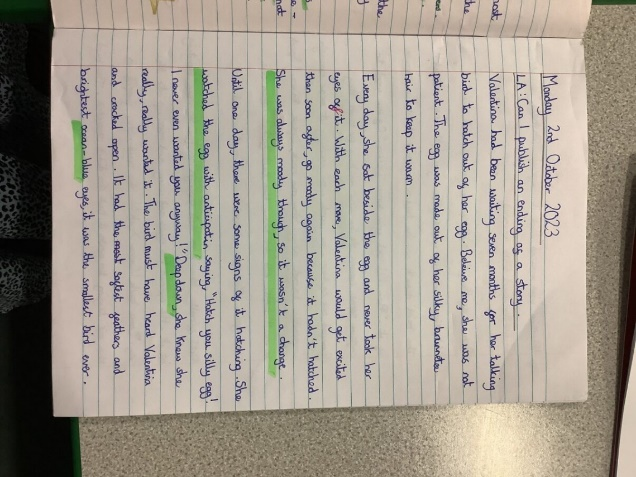 Monday 2nd October 2023
LA: Can I publish an ending of a story.
Valentina had been waiting seven months for her talking
bird to hatch out of her egg. Believe me, she was not
patient. The egg was made out of her silky, brunette
hair to keep it warm.
Every day, she sat beside the egg and never took her
eyes of it. With each move, Valentina would get excited
then soon after, go moody again because it hadn't hatched.
She was always moody though, so it wasn't a change.
Until one day, there were some signs of it hatching. She
watched the egg with anticipation, saying, "Hatch you silly egg!
I never even wanted you anyway!" Deep down, she knew she
really, really wanted it. The bird must have heard Valentina
and cracked open. It had the most softest feathers and
brightest ocean-blue eyes it was the smallest bird ever.